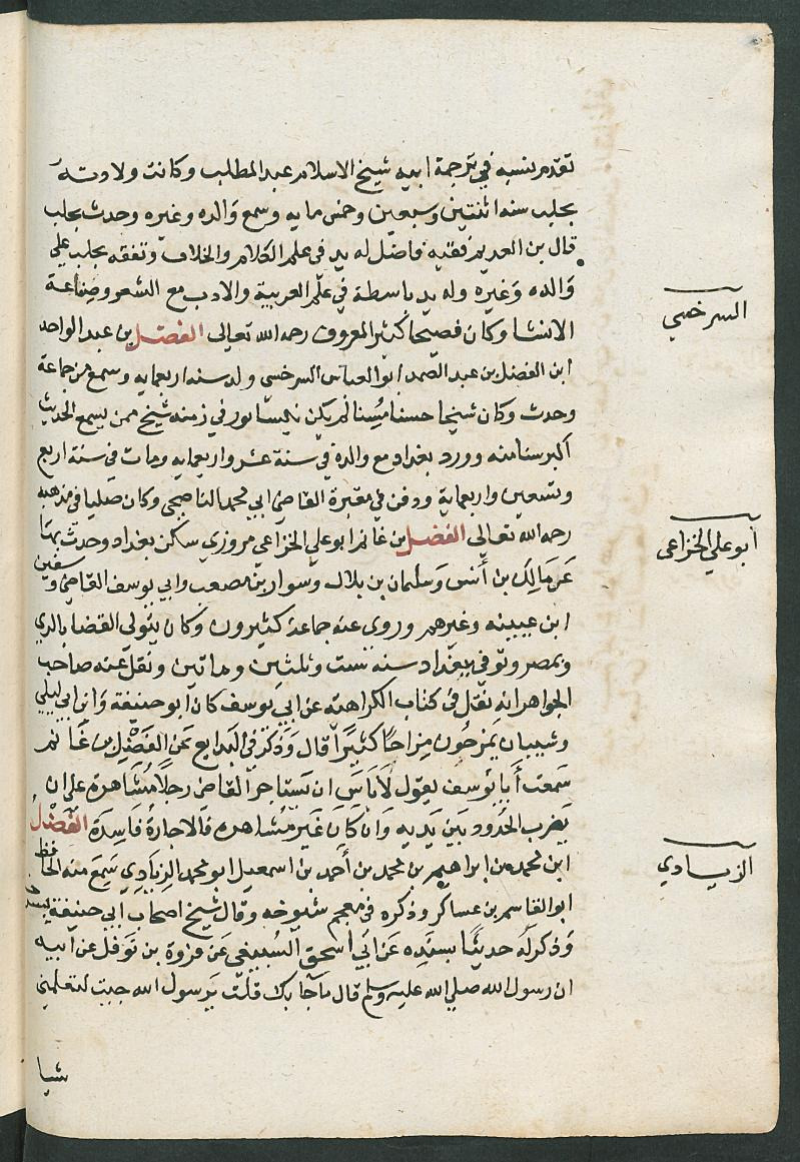 تقدم نسبه في ترجمة ابيه شيخ الاسلام عبد المطلب وكانت ولادته
بحلب سنه اثنتين وسبعين وخمس مايه وسمع والده وغيره وحدث بحلب
قال بن العديم فقيه فاضل له يد في علم الكلام والخلاف وتفقه بحلب علي
والده وغيره وله يد باسطة في علم العربية والادب مع الشعر وصناعة
الانشا وكان فصيحا كثير المعروف رحمه الله تعالى الفضل بن عبد الواحد
السرخسي
ابن الفضل بن عبد الصمد ابو العباس السرخسي ولد سنه اربعمايه وسمع من جماعة
وحدث وكان شيخا حسنا مسنا لم يكن بنيسابور في زمنه شيخ ممن يسمع الحديث
اكبر سنا منه وورد بغداد مع والده في سنة عشر واربعمايه ومات في سنة اربع
وتسعين واربعماية ودفن في مقبرة القاضي ابي محمد الناصحي وكان صلبا في مذهبه
رحمه الله تعالى الفضل بن غانم ابو علي الخزاعي مروزي سكن بغداد وحدث بها
أبو علي الخزاعي
عن مالك بن أنس وسلمان بن بلال وسوار بن مصعب وابي يوسف القاضي وسفين
ابن عيينه وغيرهم وروي عنه جماعة كثيرون وكان يتولي القضا بالري
وبمصر وتوفي ببغداد سنه ست وثلثين وماتين ونقل عنه صاحب
الجواهر انه نقل في كتاب الكراهته عن ابي يوسف كان ابو حنيفة وابن ابي ليلي
وشيبان يمزحون مزاحا كثيرا قال وذكر في البدايع عن الفضل بن غانم
سمعت أبا يوسف يقول لا باس ان يستاجر القاضي رجلا مشاهرة علي ان
يضرب الحدود بين يديه وان كان غير مشاهره فالاجارة فاسدة الفضل
ابن محمد بن ابراهيم بن محمد بن أحمد بن اسمعيل ابو محمد الزيادي سمع منه الحافظ
الزيادي
ابو القاسم بن عساكر وذكره في معجم شيوخه وقال شيخ اصحاب ابي حنيفة
وذكر له حديثا بسنده عن ابي اسحق السبيعي عن فروة بن نوفل عن ابيه
ان رسول الله صلي الله عليه وسلم قال ما جا بك قلت يرسول الله جيت لتعلمني
شيا